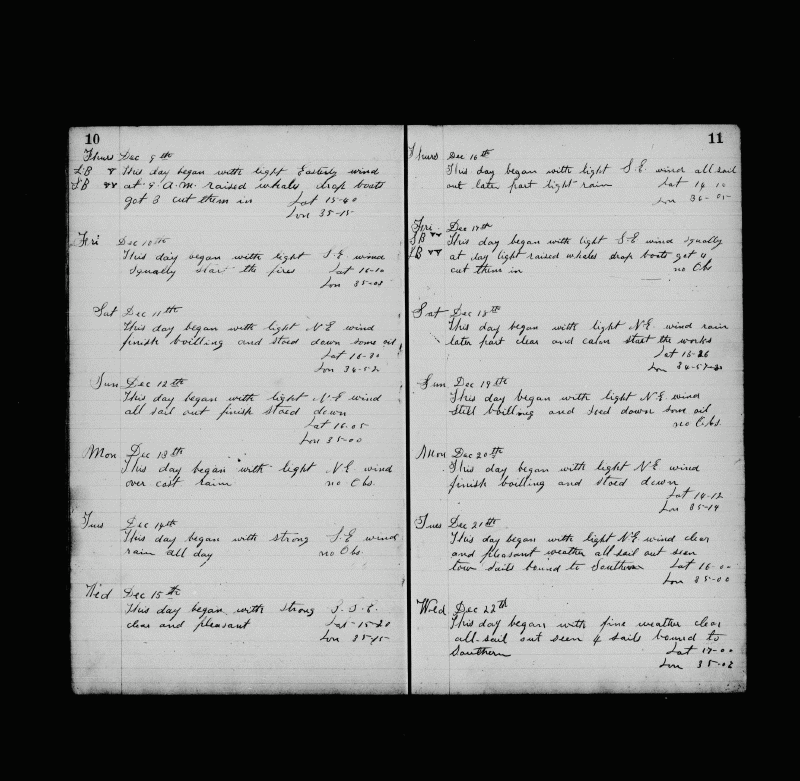 10
Thurs Dec 9th
LB This day began with light Easterly wind
SB at 9 A.M. raised whales drop boats
got 3 cut them in Lat 15-40
Lon 35-15
Fri Dec 10th
This day began with light S.E. wind
squally start the fires Lat 16-10
Lon 35-02
Sat Dec 11th
This day began with light N.E wind
finish boilling and stoed down some oil
Lat 16-20
Lon 34-52
Sun Dec 12th
This day began with light N.E wind
all sail out finish stoed down
Lat 16-05
Lon 35-00
Mon Dec 13th
This day began with light N.E. wind
over cast rain no Obs.
Tues Dec 14th
This day began with strong S.E wind
rain all day no Obs.
Wed Dec 15th
This day began with strong S.S.E.
clear and pleasant Lat-15-20
Lon 35-15
11
Thurs Dec 16th
This day began with light S.E. wind all sail
out later part light rain Lat 14 10
Lon 36-05
Fri. Dec 17th
SB This day began with light S.E wind squally
LB at day light raised whales drop boats got 4
cut them in no Obs
Sat Dec 18th
This day began with light N.E. wind rain
later part clear and calm start the works
Lat 16-26
Lon 34-57-30
Sun Dec 19th
This day began with light N.E. wind
still boilling and stoed down some oil
no Obs.
Mon Dec 20th
This day began with light N.E wind
finish boilling and stoed down
Lat 14-12
Lon 35-14
Tues Dec 21th
This day began with light N.E wind clear
and pleasant weather all sail out seen
tow sails bound to Southern Lat 16-00
Lon 35-00
Wed Dec 22th
This day began with fine weather clear
all-sail out seen 4 sails bound to
Southern Lat 17-00
Lon 35-02